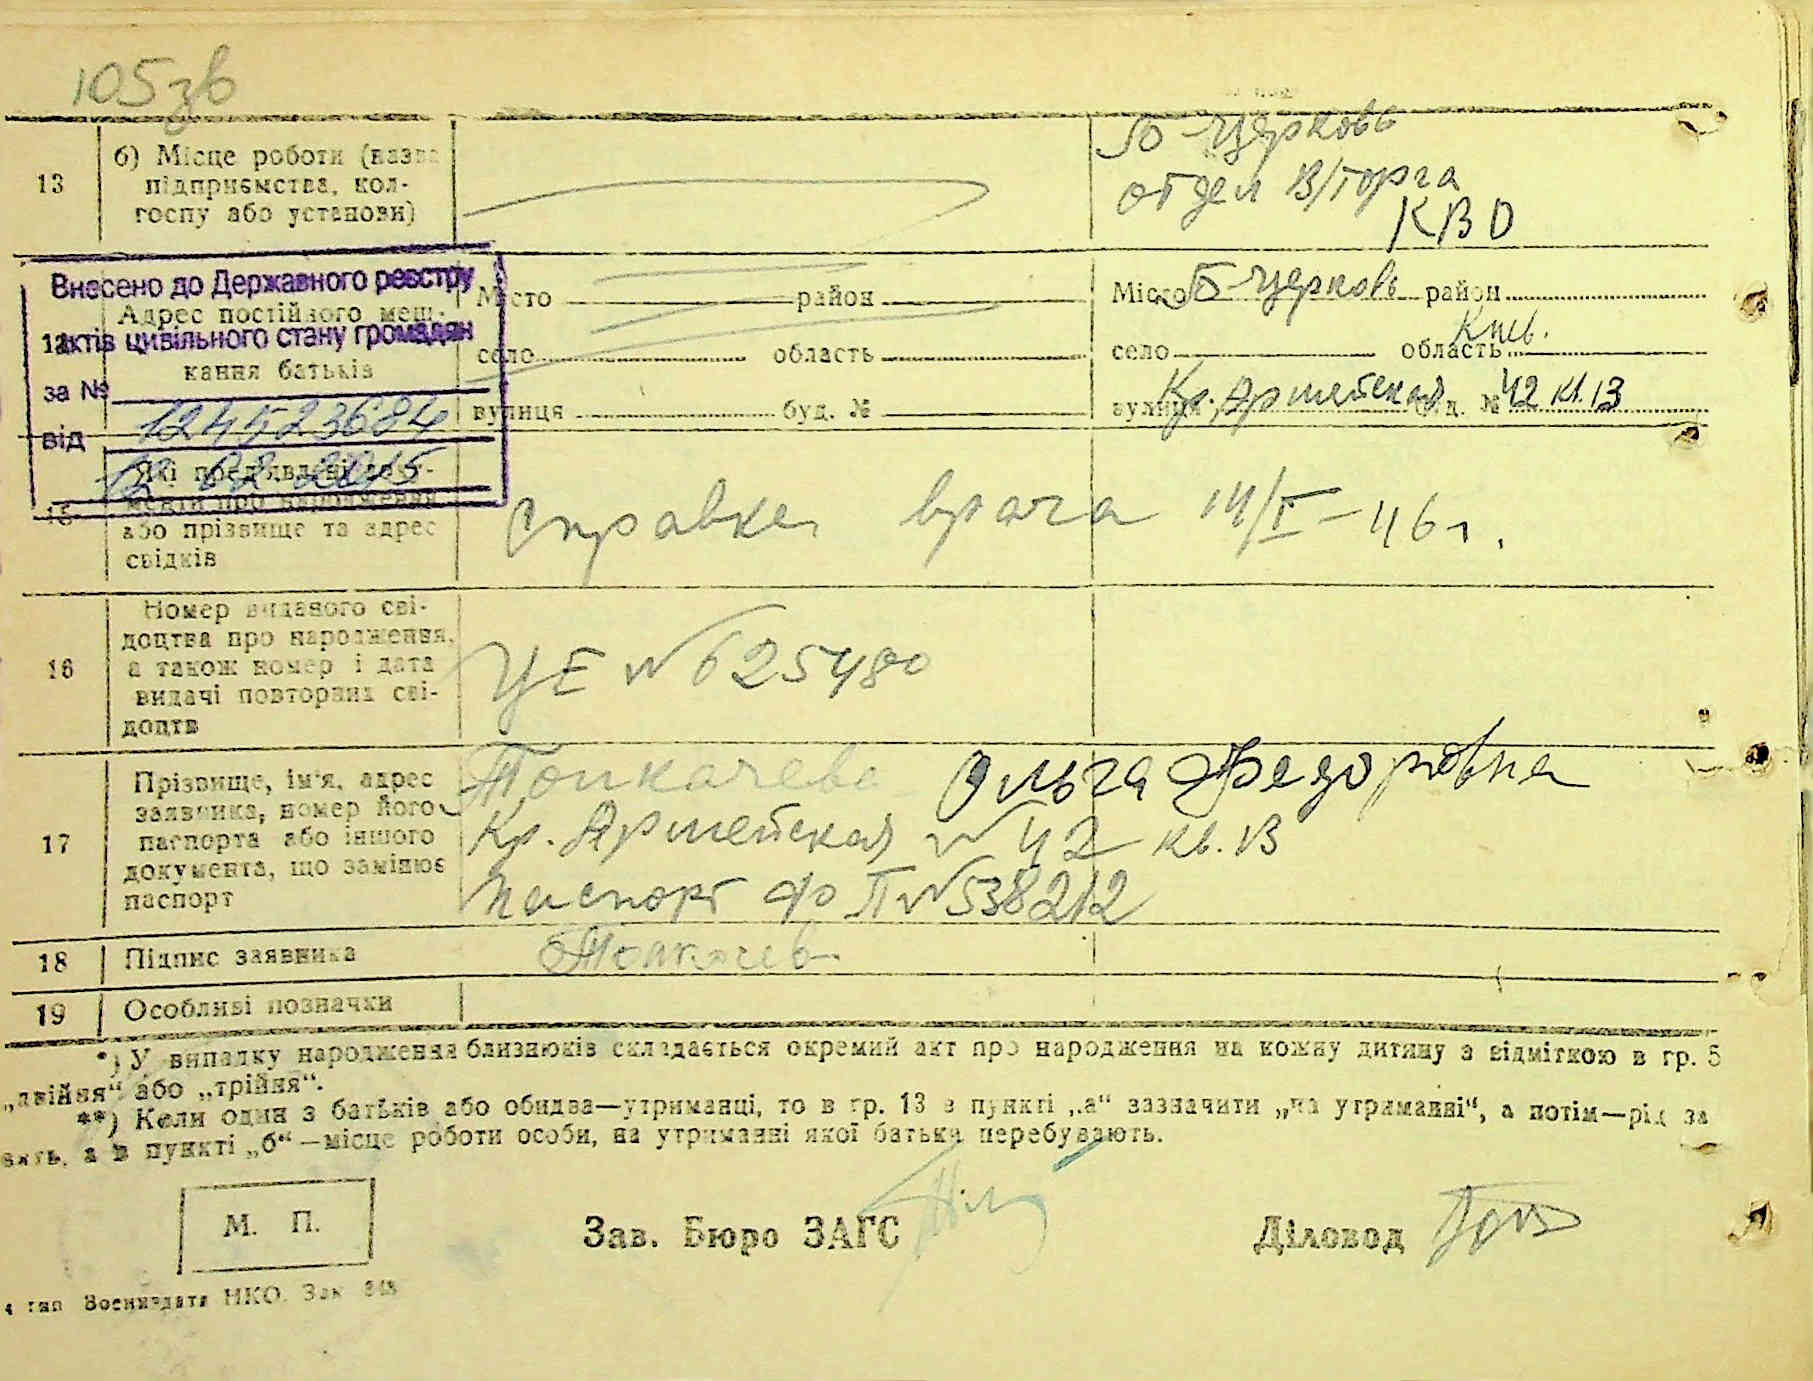 105зв
13
б) Місце роботи (назва
підприємства, кол-
госпу або установи)
Б-Церковь
отдел В/торга
КВО
Внесено до Державного реєстру
актів цивільного стану громадян
за № 124523684
від
Адрес постійного меш-
кання батьків
Місто район
село область
вулиця буд. №
Місто Б-Церковь район
село область Киев.
вулиця Кр. Армейская буд. № 42 кв. 13
15
Які пред'явлені доку-
менти про народження
або прізвище та адрес
свідків
Справка врача 14/I-46 г.
16
Номер виданого сві-
доцтва про народження,
а також номер і дата
видачі повторних сві-
доцтв
ЦЕ № 625480
17
Прізвище, ім'я, адрес
заявника, номер його
паспорта або іншого
документа, що замінює
паспорт
Толкачева Ольга Федоровна
Кр. Армейская № 42 кв. 13
Паспорт № 538212
18
Підпис заявника
19
Особливі позначки
*) У випадку народження близнюків складається окремий акт про народження на кожну дитину з відміткою в гр. 5
„двійня“ або „трійня“.
**) Коли один з батьків або обидва—утриманці, то в гр. 13 в пункті „а“ зазначити „на утриманні“, а потім—рід за
нять, а в пункті „б“—місце роботи особи, на утриманні якої батьки перебувають.
М. П.
Зав. Бюро ЗАГС
Діловод
4 тип Воениздата НКО. Зак